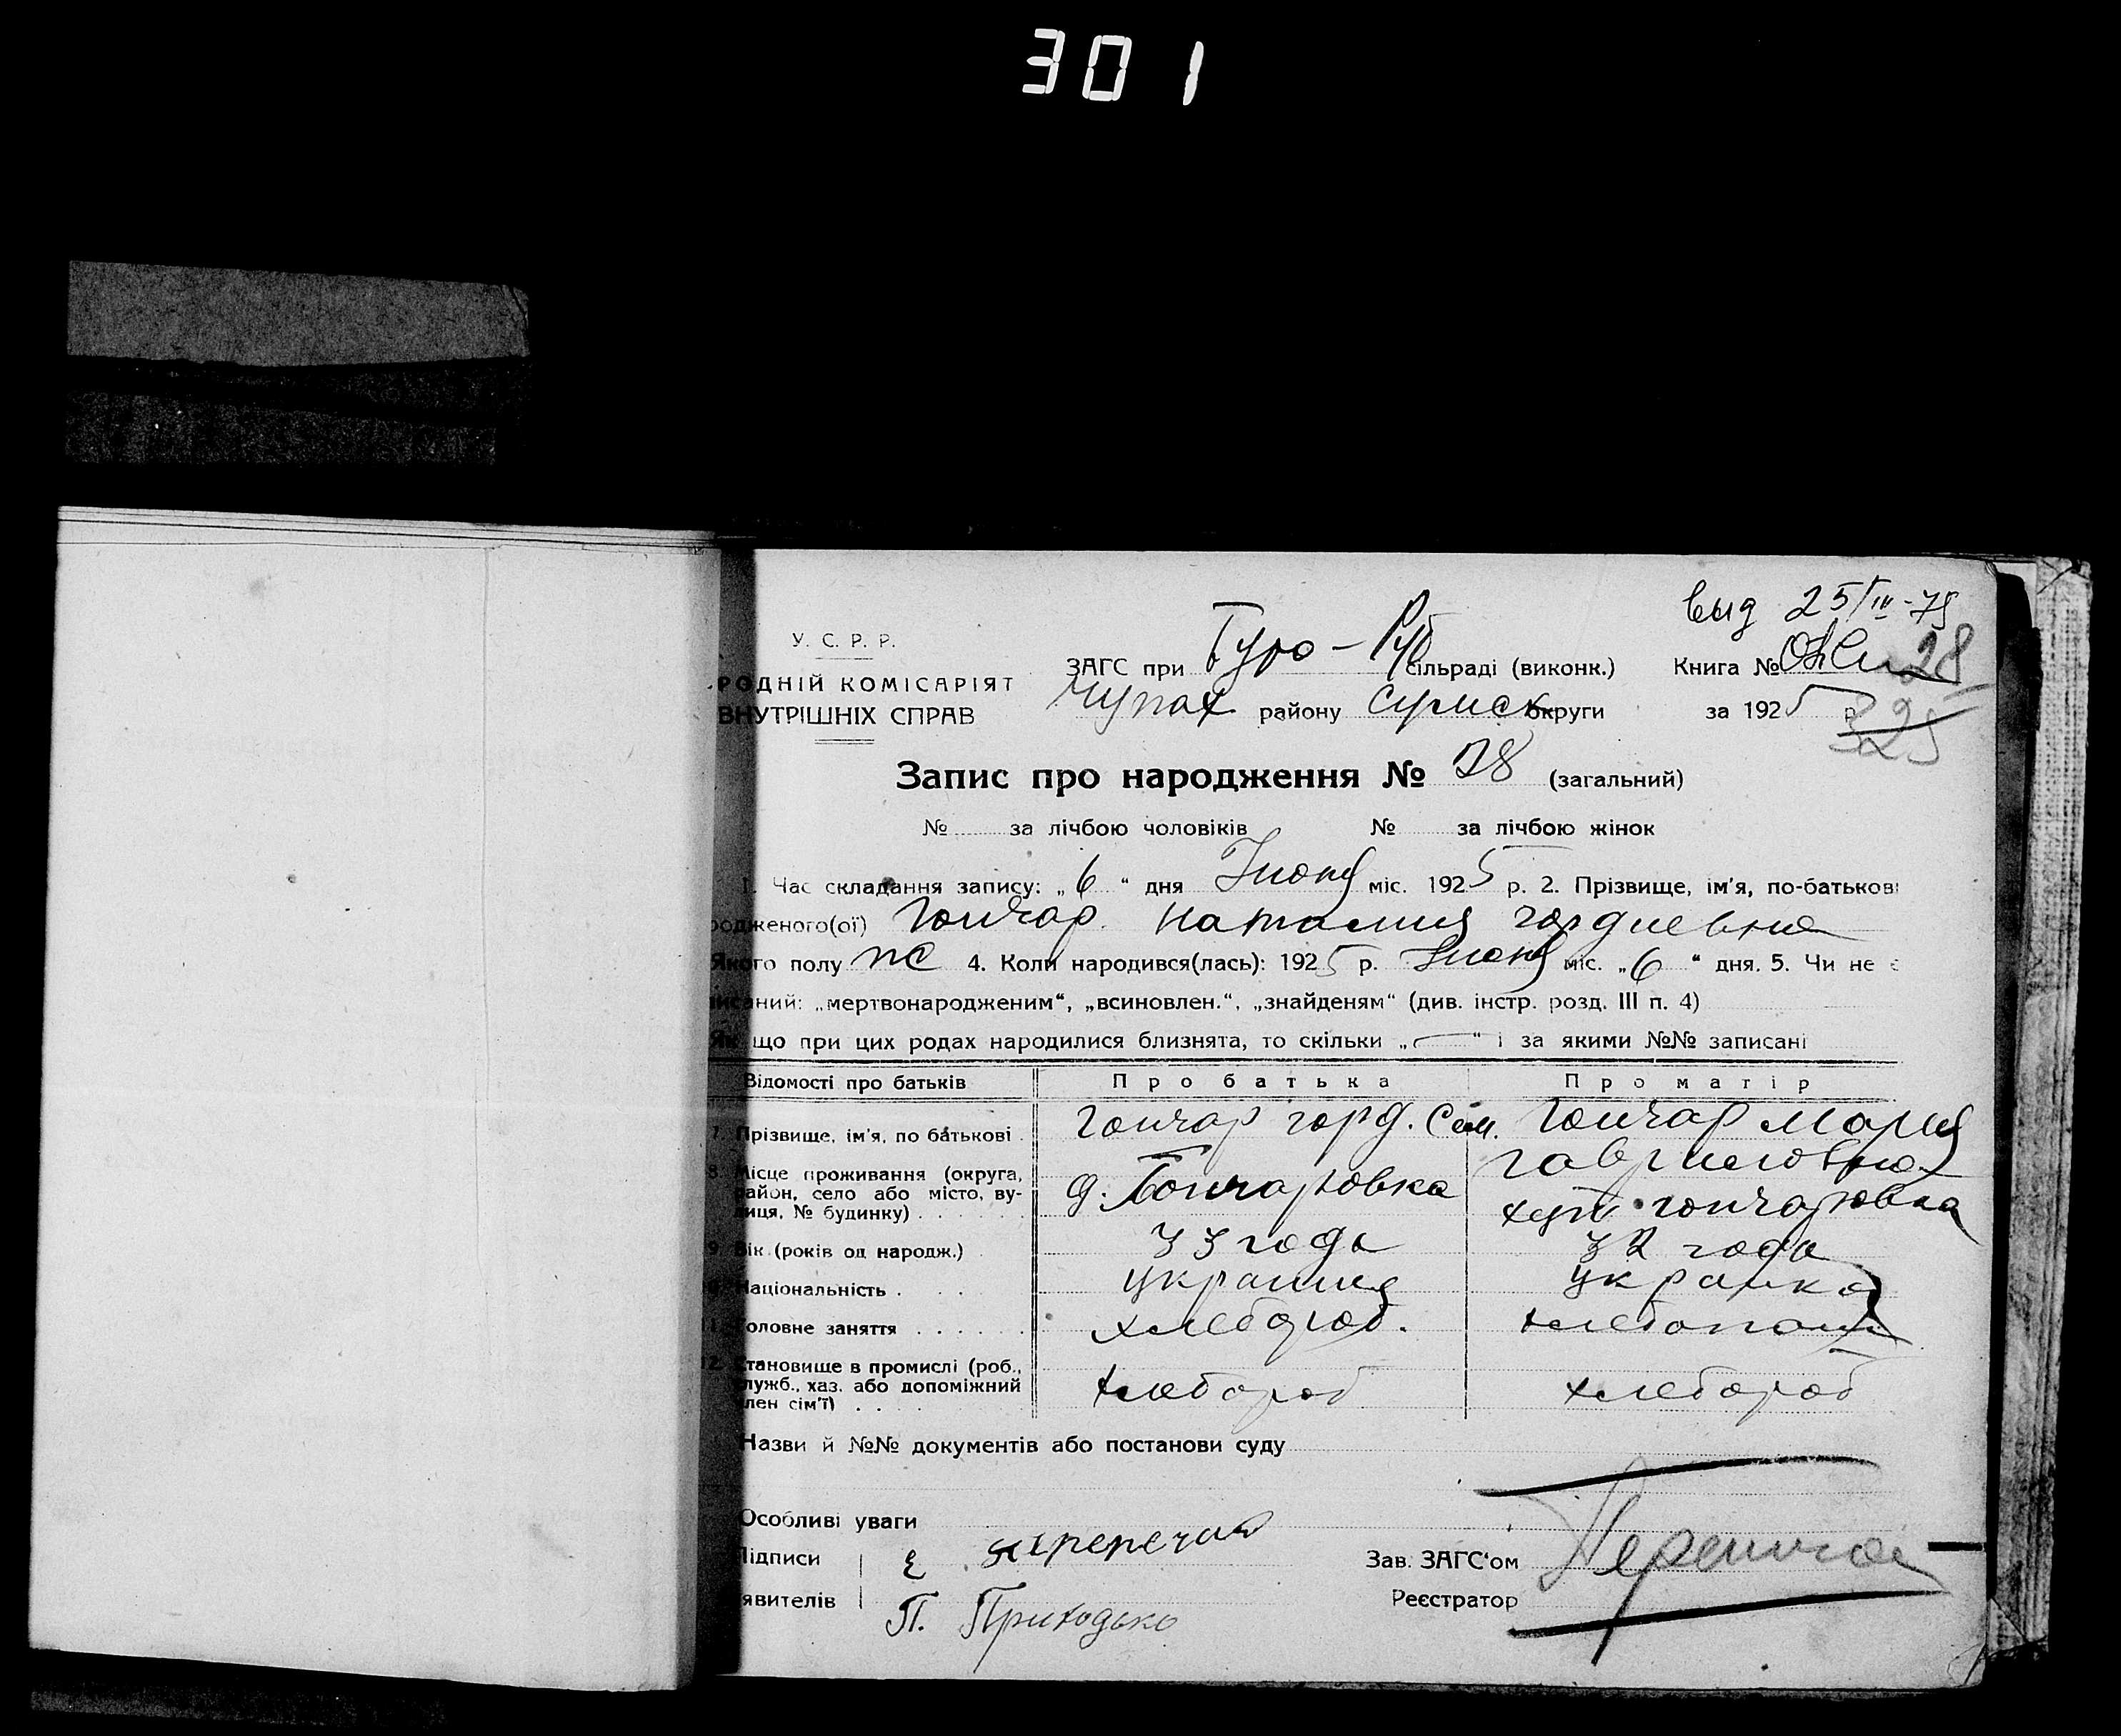 301
выд 25/III-75
У. С. Р. Р.
ЗАГС при Гуро-Руб сільраді (виконк.) Книга № 28
РОДНІЙ КОМІСАРІЯТ
Чупах району Сумск округи за 1925 р. 325
ВНУТРІШНІХ СПРАВ
Запис про народження № 28 (загальний)
№ за лічбою чоловіків № за лічбою жінок
1. Час складання запису: „6“ дня Июня міс. 1925 р. 2. Прізвище, ім'я, по-батькові
родженого(ої) Гончар Наталия Гордиевна
Якого полу жс 4. Коли народився(лась): 1925 р. Июня міс. „6“ дня. 5. Чи не є
писаний: „мертвонародженим“, „всиновлен.“, „знайденям“ (див. інстр. розд. III п. 4)
Як що при цих родах народилися близнята, то скільки „—“ і за якими №№ записані
Відомості про батьків Про батька Про матір
7. Прізвище, ім'я, по батькові Гончар Горд. Сем. Гончар Мария
Гавриловна
8. Місце проживання (округа,
район, село або місто, ву-
лиця, № будинку) д. Гончаровка хут Гончаровка
9. Вік (років од народж.) 33 года 32 года
Національність украинец украинка
11. Головне заняття хлебороб.
12. Становище в промислі (роб.,
служб., хаз. або допоміжний
член сім'ї) хлебороб хлебороб
Назви й №№ документів або постанови суду
Особливі уваги
Підписи
Зав. ЗАГС'ом
явителів П. Приходько
Реєстратор